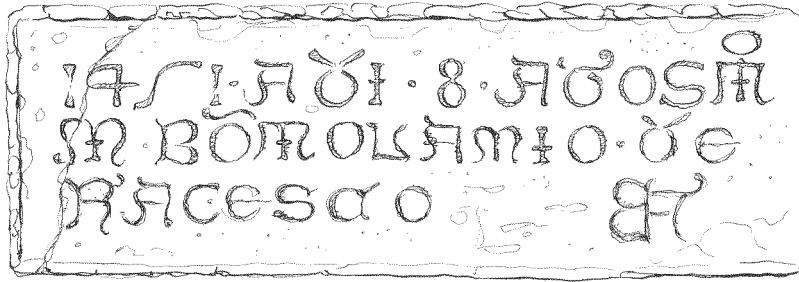 1451·ADI·8·AGOSTO
M BŌTOLAMIO·DE
FRACESCO ET